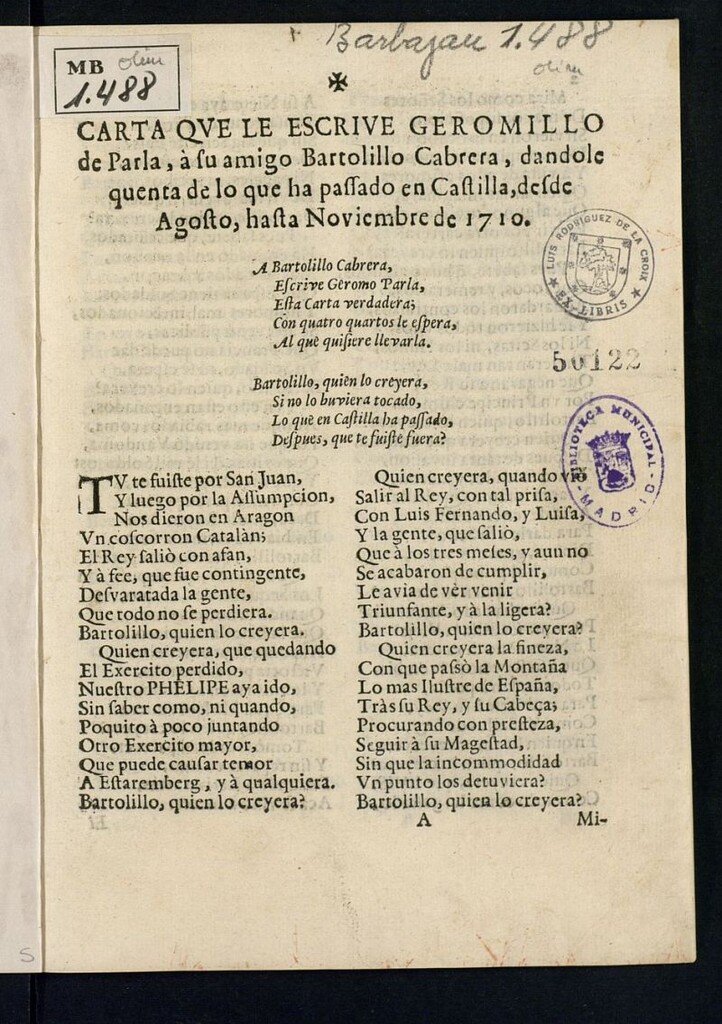 Barbajan 1.488
olim
MB olim
1.488
✠
CARTA QVE LE ESCRIVE GEROMILLO
de Parla, à ſu amigo Bartolillo Cabrera, dandole
quenta de lo que ha paſſado en Caſtilla, deſde
Agoſto, haſta Noviembre de 1710.
A Bartolillo Cabrera,
Eſcrive Geromo Parla,
Eſta Carta verdadera;
Con quatro quartos le eſpera,
Al què quiſiere llevarla.
Bartolillo, quièn lo creyera,
Si no lo huviera tocado,
Lo què en Caſtilla ha paſſado,
Deſpues, que te fuiſte fuera?
LUIS RODRIGUEZ DE LA CROIX
EX-LIBRIS
50122
BIBLIOTECA MUNICIPAL
MADRID
TV te fuiſte por San Juan,
Y luego por la Aſſumpcion,
Nos dieron en Aragon
Vn coſcorron Catalàn;
El Rey ſaliò con afan,
Y à fee, que fue contingente,
Deſvaratada la gente,
Que todo no ſe perdiera.
Bartolillo, quien lo creyera.
Quien creyera, que quedando
El Exercito perdido,
Nueſtro PHELIPE aya ido,
Sin ſaber como, ni quando,
Poquito à poco juntando
Otro Exercito mayor,
Que puede cauſar temor
A Eſtaremberg, y à qualquiera.
Bartolillo, quien lo creyera?
Quien creyera, quando viò
Salir al Rey, con tal priſa,
Con Luis Fernando, y Luiſa,
Y la gente, que ſaliò,
Que à los tres meſes, y aun no
Se acabaron de cumplir,
Le avia de vèr venir
Triunfante, y à la ligera?
Bartolillo, quien lo creyera?
Quien creyera la fineza,
Con que paſsò la Montaña
Lo mas Iluſtre de Eſpaña,
Tràs ſu Rey, y ſu Cabeça;
Procurando con preſteza,
Seguir à ſu Mageſtad,
Sin que la incommodidad
Vn punto los detuviera?
Bartolillo, quien lo creyera?
A
Mi-